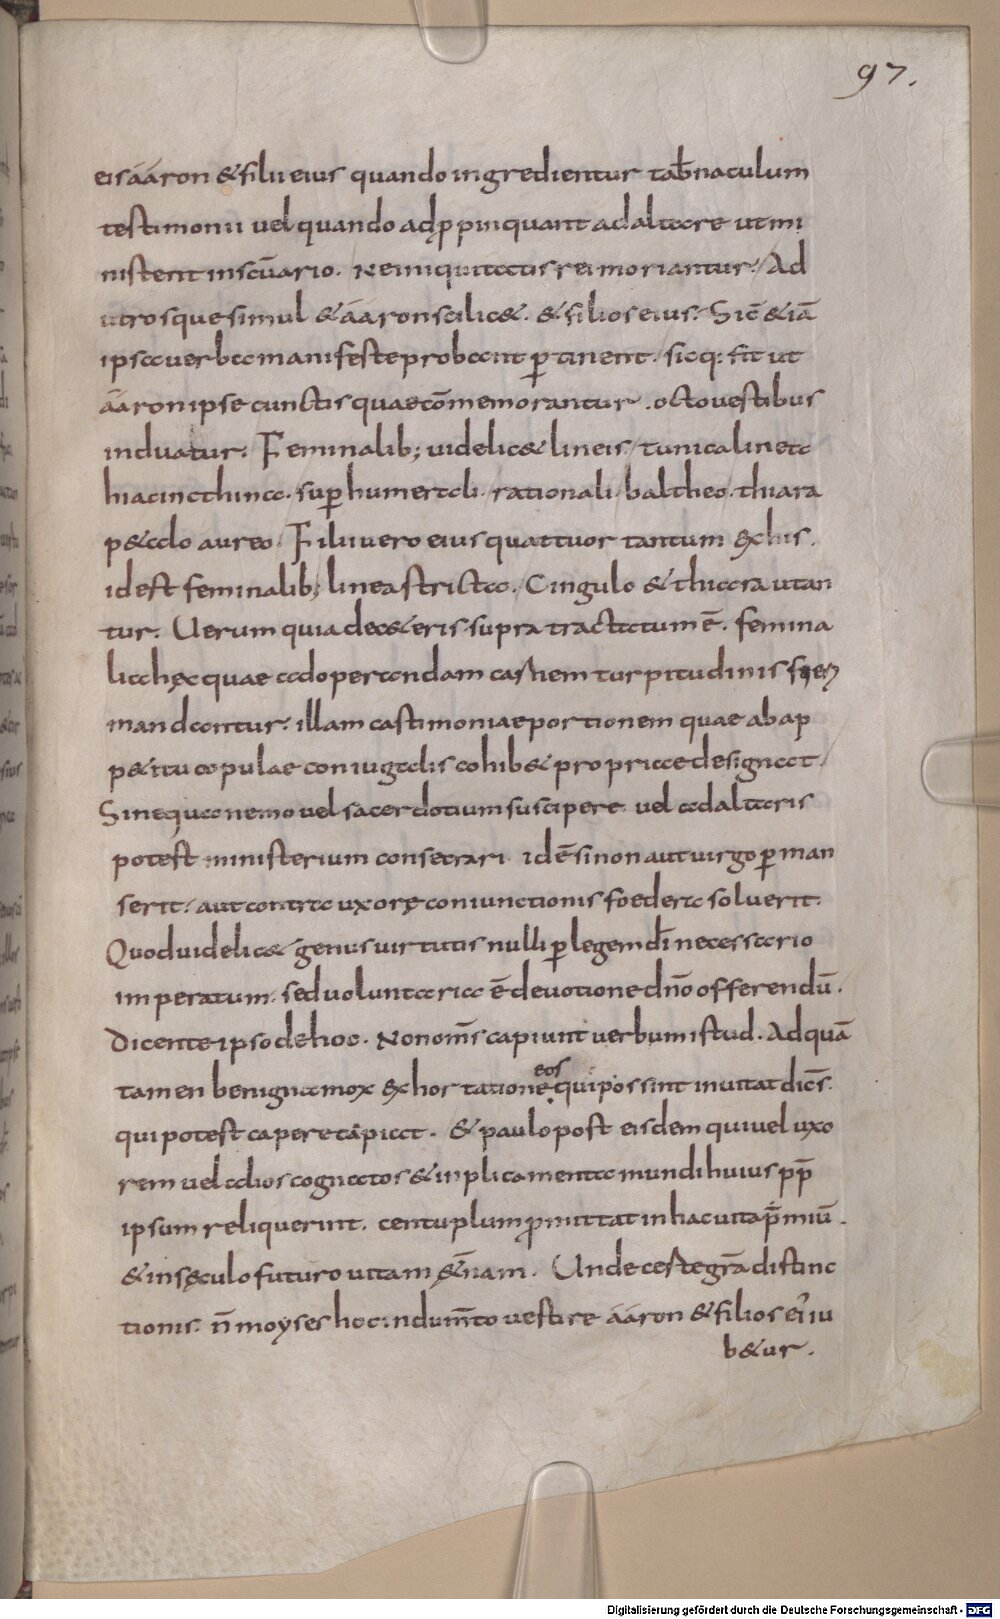 97.
eis ááron & filii eius quando ingredientur tab̄naculum
testimonii vel quando adp̱pinquant ad altare ut mi
nistrent in scūario. Ne iniquitatis rei moriantur. Ad
utrosque simul & ááron scilic&. & filios eius. Sic̄ & iā
ipsa verba manifeste probant p̱tinent. sicq: fit ut
ááron ipse cunctis quae cōmemorantur. octo vestibus
induatur. Feminalib; uidelic& lineis. tunica linea
hiacincthina. sup̱humerali. rationali. baltheo. thiara
p&alo aureo. Filii vero eius quattuor tantum ex his.
id est feminalib; linea stricta. Cingulo & thiara utan
tur. Uerum quia de c&eris supra tractatum ē. femina
lia hęc quae ad operiendam carnem turpitudinis fieri
mandantur. illam castimoniae portionem quae ab ap
p&itu copulae coniugalis cohib& propriae designat
Sine qua nemo vel sacerdotium suscipere vel ad altaris
potest ministerium consecrari. id ē si non aut virgo p̱man
serit. aut contra uxorę coniunctionis foedera solverit.
Quod uidelic& genus virtutis nulli p̱ legem dī necessario
imperatum. sed voluntaria ē devotione dn̄o offerendū.
Dicente ipso de hoc. Non om̄s capiunt verbum istud. Ad quā
tamen benigna mox exhortatione eos qui possint invitat dicēs.
qui potest capere capiat. & paulo post eisdem qui vel uxo
rem vel alios cognatos & inplicamenta mundi huius pp̄
ipsum reliquerint. centuplum p̱mittat in hac vita p̄miū.
& in sęculo futuro vitam ęt̄nam. Unde c̨aeste gr̄a distinc
tionis. n̄ moyses hoc indum̄to vestire ááron & filios ei' iu
b&ur.
Digitalisierung gefördert durch die Deutsche Forschungsgemeinschaft - DFG